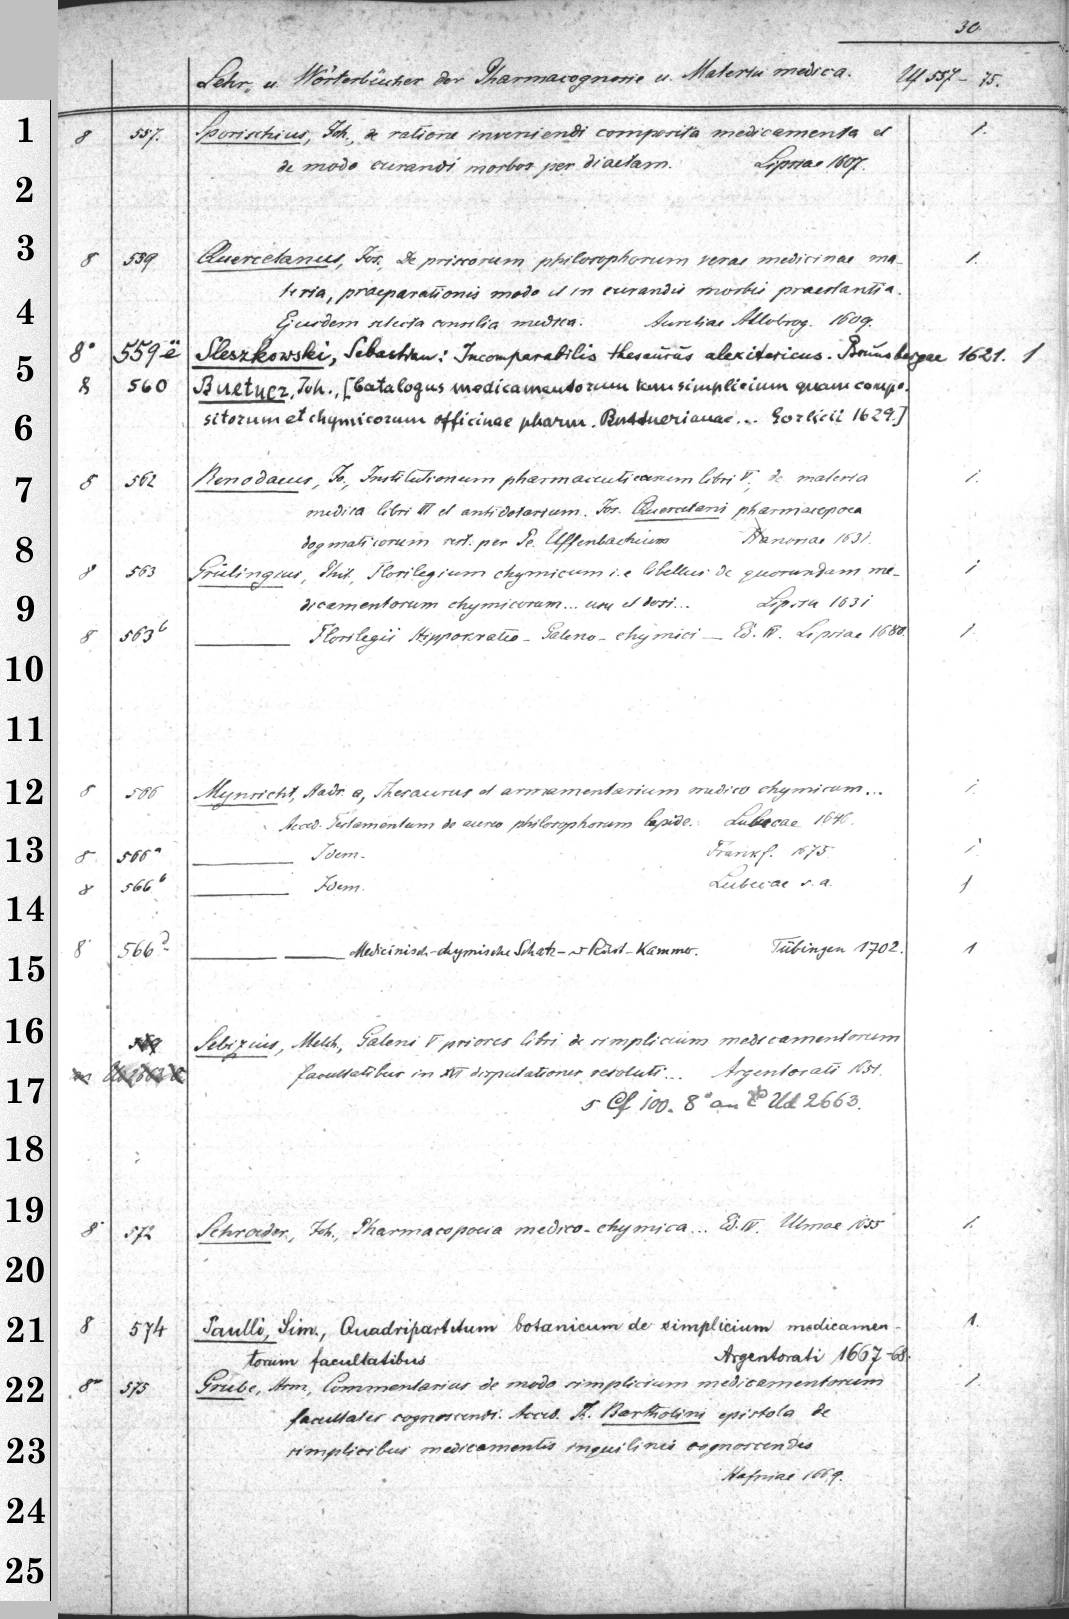 30
Lehr- u. Wörterbücher der Pharmacognosie u. Materia medica. Uf 557-75.
1
8 557. Sporischius, Joh., de ratione inveniendi composita medicamenta et 1.
de modo curandi morbos per diaetam. Lipsiae 1607.
2
3
8 559 Quercetanus, Jos., De priscorum philosophorum verae medicinae ma- 1.
teria, praeparationis modo et in curandis morbis praestantia.
4
Ejusdem selecta consilia medica. Aureliae Allobrog. 1609.
8° 559 ë Sleszkowski, Sebastian: Incomparabilis thesaurus alexitericus. Brunsbergae 1621. 1
5
8 560 Buetner, Joh., [Catalogus medicamentorum tam simplicium quam compo-
6
sitorum et chymicorum officinae pharm. Buttnerianae... Gorlicii 1629.]
7
8 562 Renodaeus, Jo., Institutionum pharmaceuticarum libri V, de materia 1.
medica libri III et antidotarium. Jos. Quercetani pharmacopoea
8
dogmaticorum rest. per Pe. Uffenbachium Hanoviae 1631.
8 563 Grülingius, Phil., Florilegium chymicum i. e. libellus de quorundam me- 1
9
dicamentorum chymicorum... usu et dosi... Lipsiae 1631
8 563b ——— Florilegii Hippokrateo-Galeno-chymici — Ed. IV. Lipsiae 1680. 1.
10
11
12
8 566 Mynsicht, Hadr. a, Thesaurus et armamentarium medico chymicum... 1.
Acced. Testamentum de aureo philosophorum lapide. Lubecae 1646.
13
8. 566a ——— Idem. Francof. 1675. 1.
8 566b ——— Idem. Lubecae s. a. 1
14
15
8° 566d ——— ——— Medicinisch-chymische Schatz- u Rüst-Kammer. Tübingen 1702. 1
16
569 Sebizius, Melch., Galeni V priores libri de simplicium medicamentorum
17
facultatibus in XVI disputationes resoluti... Argentorati 1651.
s Cf 100. 8° an Ud 2663.
18
19
8° 572 Schroeder, Joh., Pharmacopoeia medico-chymica... Ed. IV. Ulmae 1655 1.
20
21
8 574 Paulli, Sim., Quadripartitum botanicum de simplicium medicamen- 1.
torum facultatibus Argentorati 1667-68.
22
8° 575 Grube, Herm., Commentarius de modo simplicium medicamentorum 1.
facultates cognoscendi. Acced. Th. Bartholini epistola de
23
simplicibus medicamentis inquilinis cognoscendis
Hafniae 1669.
24
25